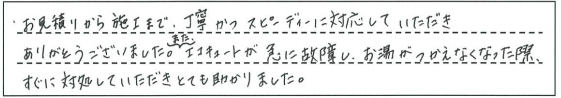 ・お見積りから施工まで、丁寧かつスピーディーに対応していただき
ありがとうございました。また、エコキュートが急に故障し、お湯がつかえなくなった際、
すぐに対処していただきとても助かりました。